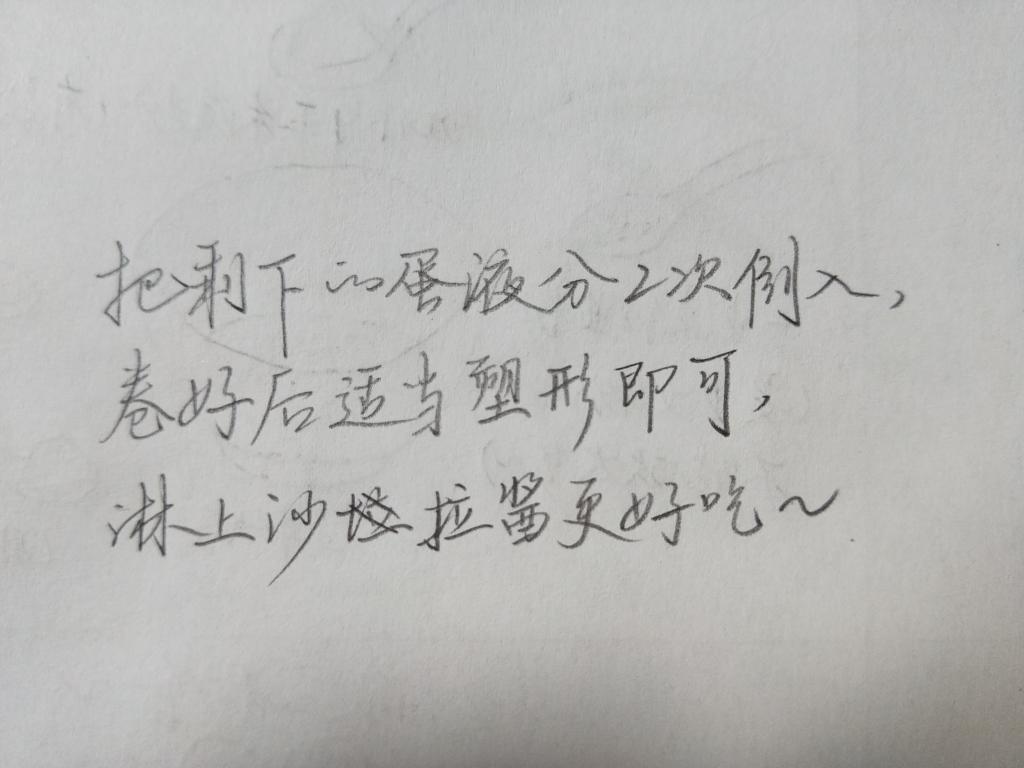 把剩下的蛋液分2次倒入，
卷好后适当塑形即可，
淋上沙拉酱更好吃～